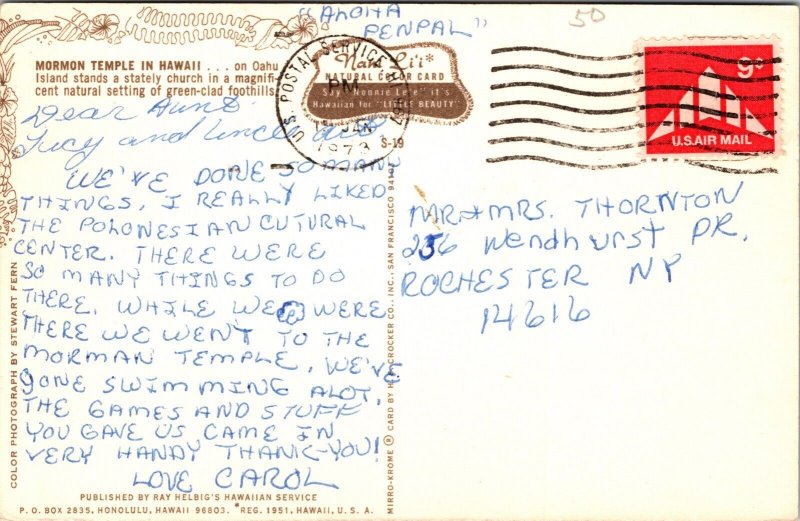 "ALOHA
PENPAL"
50
MORMON TEMPLE IN HAWAII . . . on Oahu
Island stands a stately church in a magnifi-
cent natural setting of green-clad foothills
NATURAL COLOR CARD
Say "Noonie Lee" it's
Hawaiian for "LITTLE BEAUTY"
S-19
U.S. POSTAL SERVICE
PM
JAN
1973
9¢
U.S. AIR MAIL
Dear Aunt
Lucy and Uncle
WE'VE DONE SO MANY
THINGS, I REALLY LIKED
THE POLONESIAN CUTURAL
CENTER. THERE WERE
SO MANY THINGS TO DO
THERE. WHILE WE WERE
THERE WE WENT TO THE
MORMAN TEMPLE, WE'VE
GONE SWIMMING ALOT.
THE GAMES AND STUFF
YOU GAVE US CAME IN
VERY HANDY THANK-YOU!
LOVE CAROL
MR + MRS. THORNTON
256 Wendhurst DR.
ROCHESTER NY
14616
PUBLISHED BY RAY HELBIG'S HAWAIIAN SERVICE
P. O. BOX 2835, HONOLULU, HAWAII 96803. *REG. 1951, HAWAII, U. S. A.
COLOR PHOTOGRAPH BY STEWART FERN
MIRRO-KROME ® CARD BY H. S. CROCKER CO., INC., SAN FRANCISCO